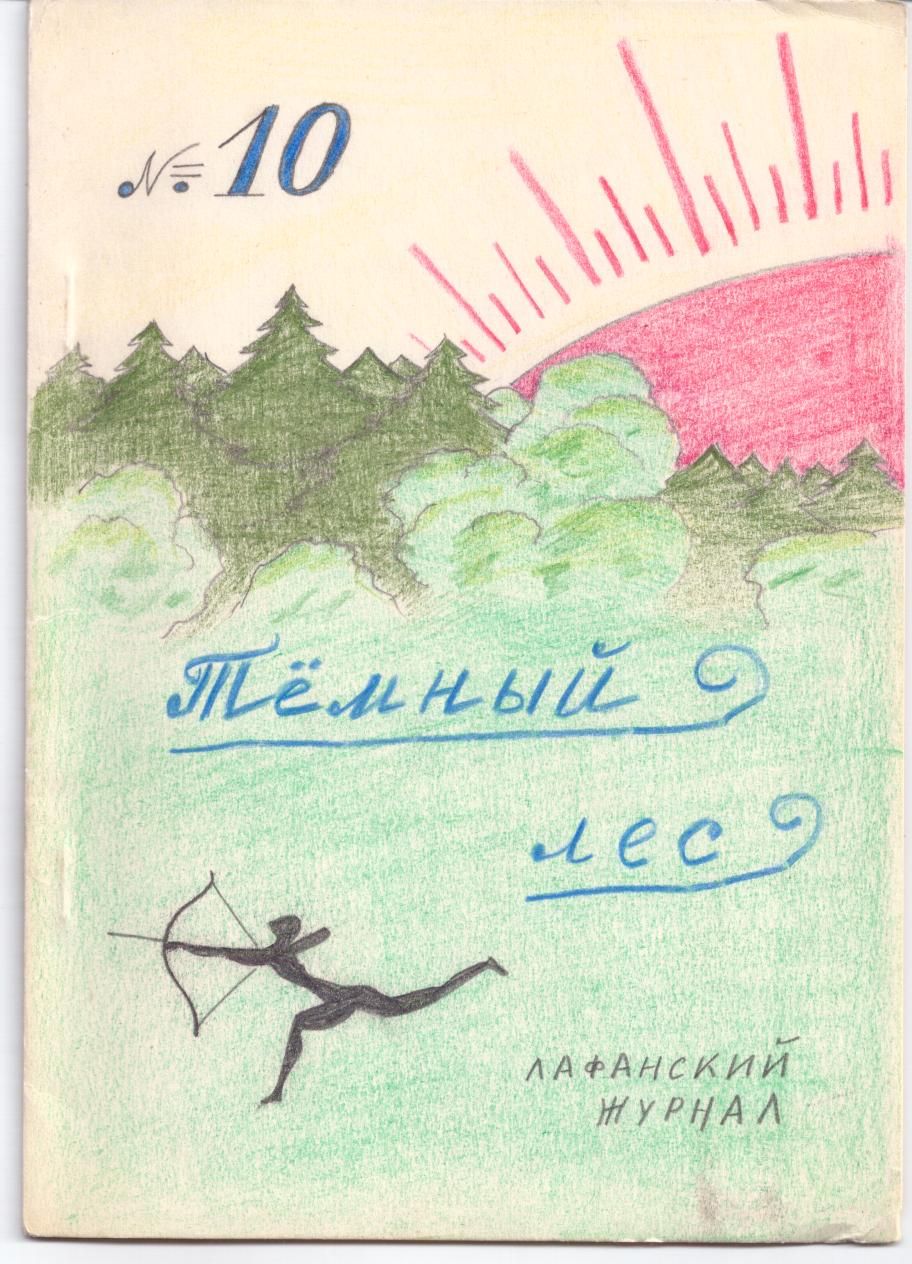 № 10
Тёмный
лес
ЛАФАНСКИЙ
ЖУРНАЛ